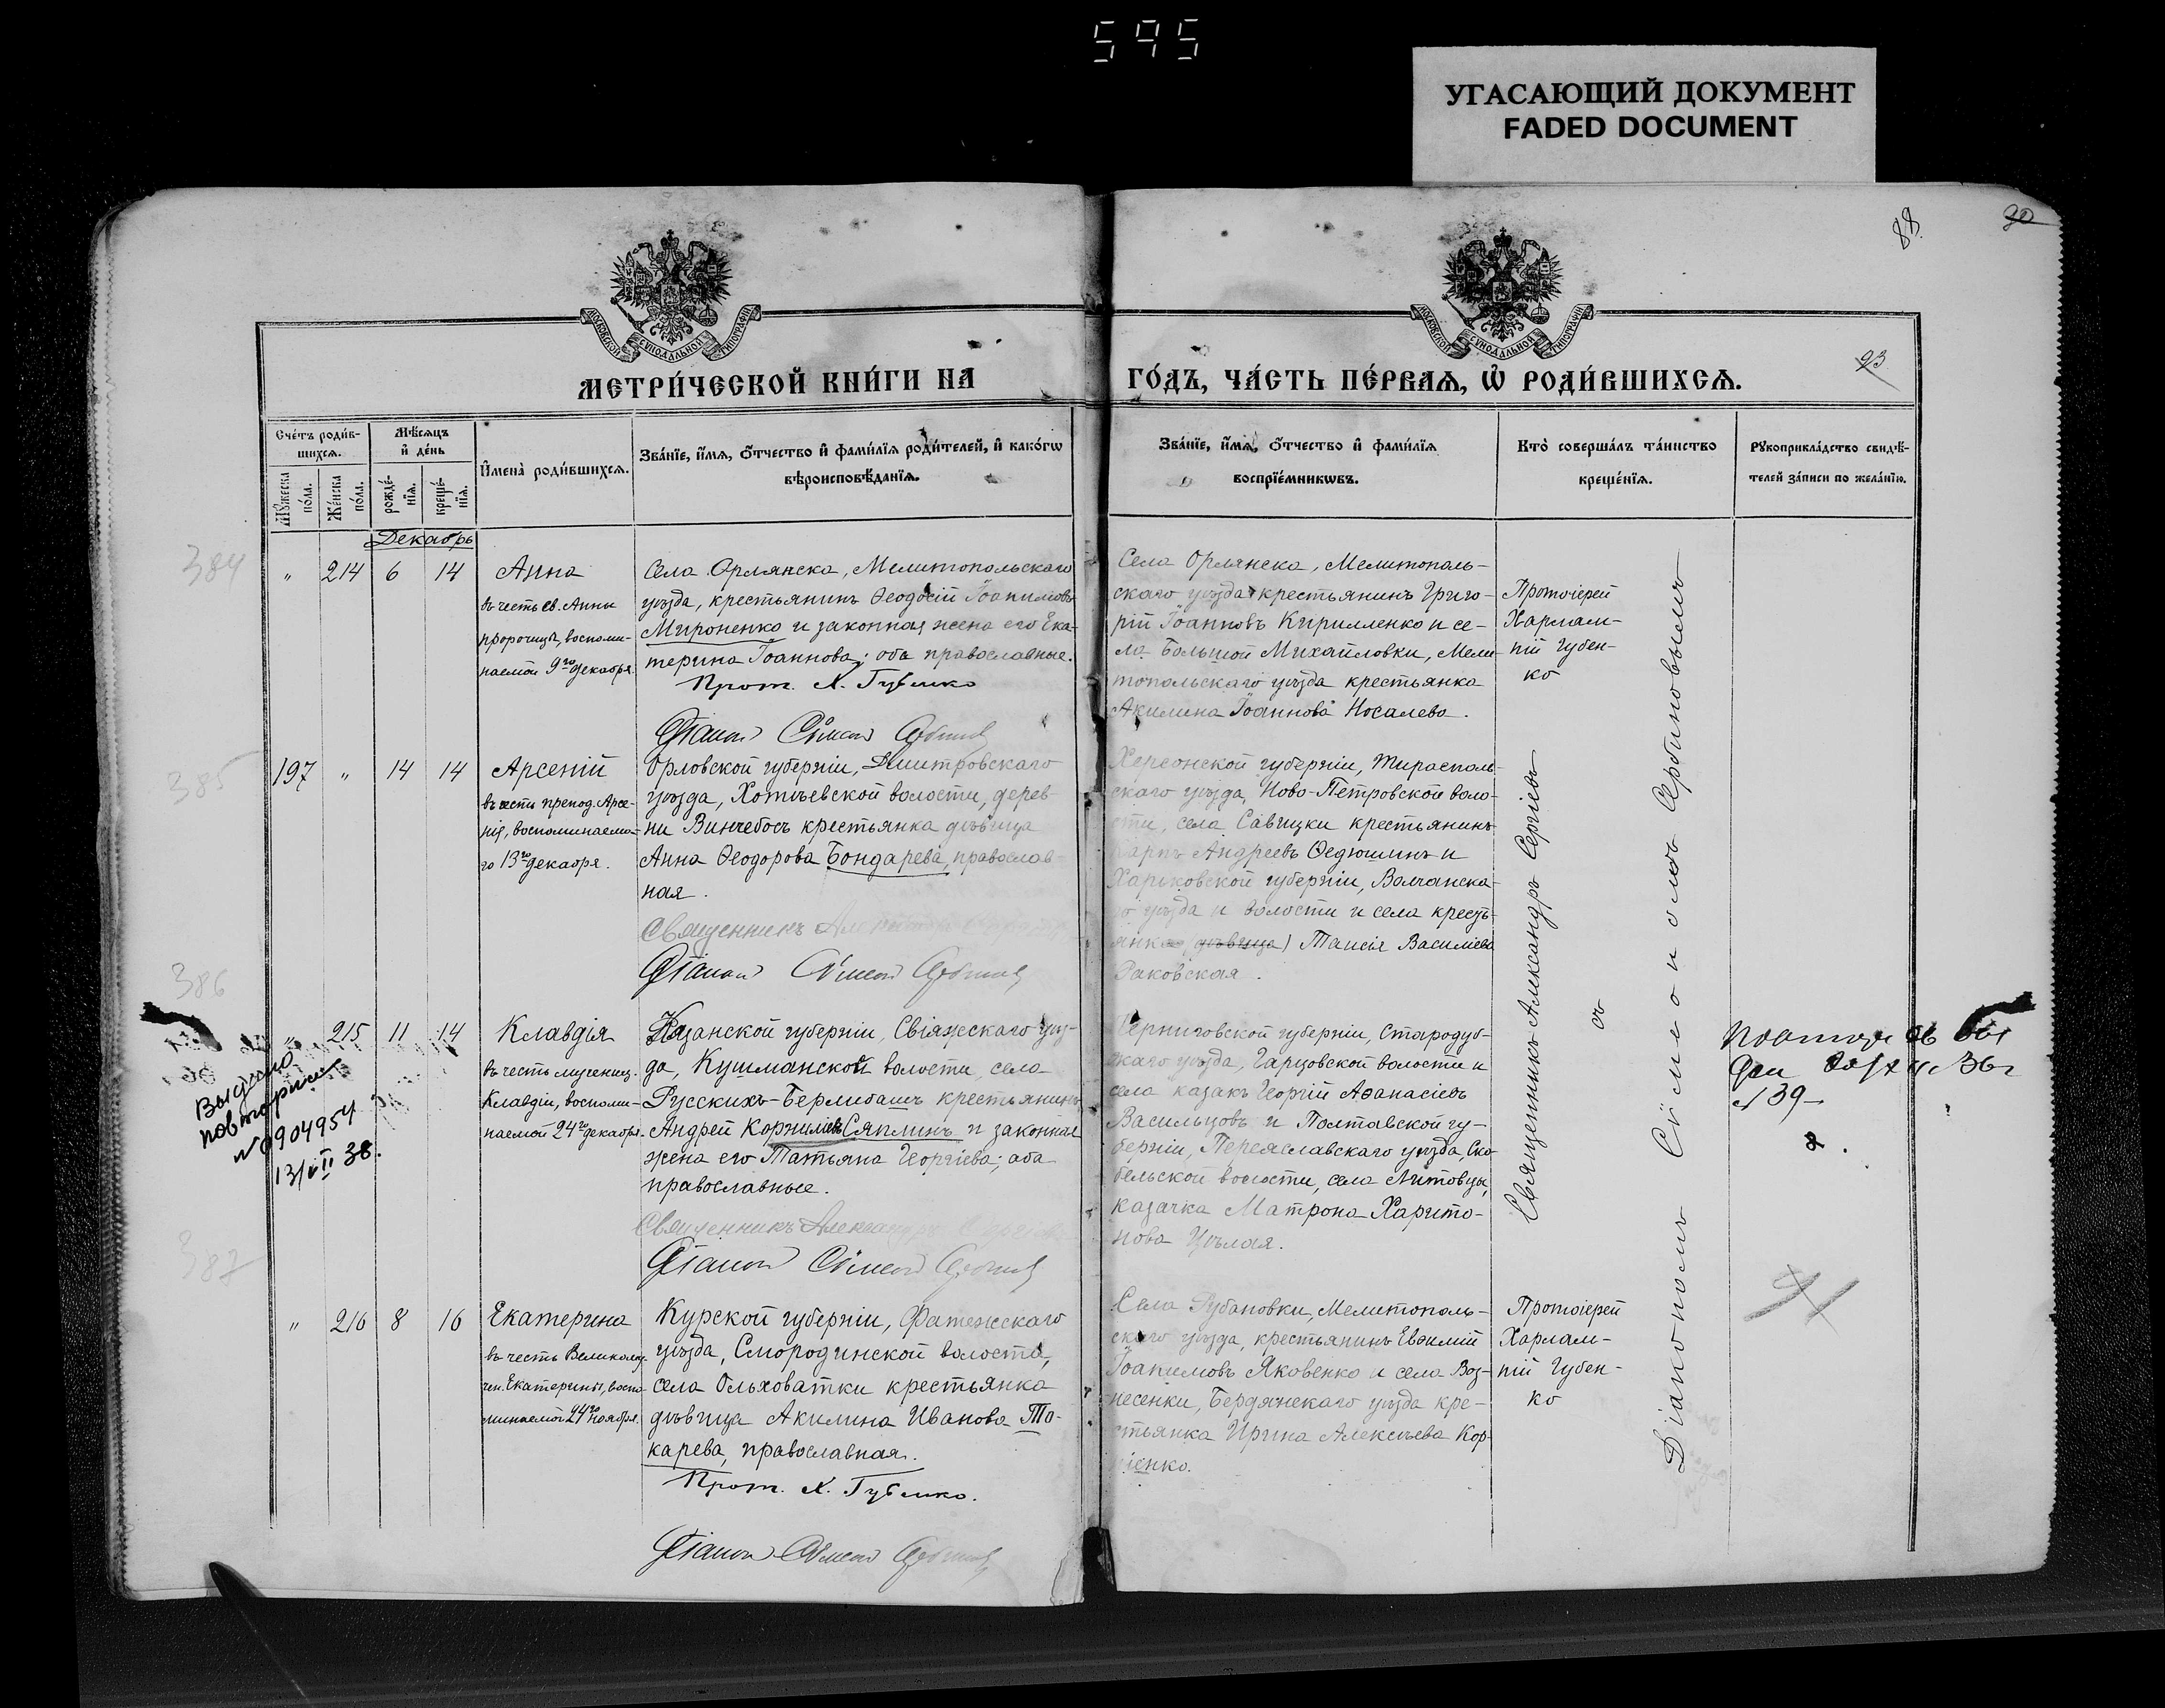 595
УГАСАЮЩИЙ ДОКУМЕНТ
FADED DOCUMENT
88.
90
93
МОСКОВСКОЙ СѴНОДАЛЬНОЙ ТИПОГРАФІИ
МОСКОВСКОЙ СѴНОДАЛЬНОЙ ТИПОГРАФІИ
МЕТРИ́ЧЕСКОЙ КНИ́ГИ НА
ГО́ДЪ, ЧА́СТЬ ПЕ́РВАѦ, Ѡ҆ РОДИ́ВШИХСѦ.
Сче́тъ роди́в-
шихсѧ.
Мꙋ́жеска по́ла.
Же́нска по́ла.
Мѣ́сѧцъ
и҆ де́нь
рожде́-
нїѧ.
креще́-
нїѧ.
И҆мена̀ роди́вшихсѧ.
Зва́нїе, и҆́мѧ, ѻ҆́тчество и҆ фами́лїѧ роди́телей, и҆ како́гѡ
вѣроисповѣ́данїѧ.
Зва́нїе, и҆́мѧ, ѻ҆́тчество и҆ фами́лїѧ
воспрїе́мникѡвъ.
Кто̀ соверша́лъ та́инство
креще́нїѧ.
Рꙋкоприкла́дство свидѣ́-
телей за́писи по жела́нїю.
Декабрь
384
" 214 6 14
Анна
въ честь св. Анны
пророчицы, воспоми-
наемой 9го декабря.
Села Орлянска, Мелитопольскаго
уѣзда, крестьянинъ Ѳеодосій Іоакимовъ
Мироненко и законная жена его Ека-
терина Іоаннова; оба православные.
Прот. Х. Губенко
Діаконъ Сѵмеонъ
Села Орлянска, Мелитополь-
скаго уѣзда крестьянинъ Григо-
рій Іоанновъ Кириленко и се-
ла Большой Михайловки, Мели-
топольскаго уѣзда крестьянка
Акилина Іоаннова Носалева.
Протоіерей
Харлам-
пій Губен-
ко
385
197 " 14 14
Арсеній
въ честь препод. Арсе-
нія, воспоминаема-
го 13го декабря.
Орловской губерніи, Дмитровскаго
уѣзда, Хотѣевской волости, дерев-
ни крестьянка дѣвица
Анна Ѳеодорова Бондарева, православ-
ная.
Священникъ
Діаконъ Сѵмеонъ
Херсонской губерніи, Тирасполь-
скаго уѣзда, Ново-Петровской воло-
сти, села Савицки крестьянинъ
Карпъ Андреевъ Ѳедюшинъ и
Харьковской губерніи, Волчанска-
го уѣзда и волости и села кресть-
янка (дѣвица) Таисія Василіева
Раковская.
386
" 215 11 14
Клавдія
въ честь мучениц.
Клавдіи, воспоми-
наемой 24го декабря.
Казанской губерніи, Свіяжскаго уѣз-
да, Кушманской волости, села
Русскихъ-Бурлибашъ крестьянинъ
Андрей Корниліевъ Сяплинъ и законная
жена его Татьяна Георгіева; оба
православные.
Священникъ Александръ Сергіевъ
Діаконъ Сѵмеонъ
Черниговской губерніи, Стародуб-
скаго уѣзда, Гарцовской волости и
села казакъ Георгій Аѳанасіевъ
Васильцовъ и Полтавской гу-
берніи, Переяславскаго уѣзда,
волости, села Литовцы,
казачка Матрона Харито-
нова Цѣлая.
Священникъ Александръ Сергіевъ
съ
Діакономъ Сѵмеономъ Арбиновымъ
Выдано
повторное
№0904954
13/VII 38.
36г
№139
387
" 216 8 16
Екатерина
въ честь Великому-
чен. Екатерины, воспо-
минаемой 24го ноября.
Курской губерніи, Фатежскаго
уѣзда, Смородинской волости,
села Ольховатки крестьянка
дѣвица Акилина Иванова То-
карева, православная.
Прот. Х. Губенко.
Діаконъ Сѵмеонъ
Села Рубановки, Мелитополь-
скаго уѣзда, крестьянинъ Евѳимій
Іоакимовъ Яковенко и села Воз-
несенки, Бердянскаго уѣзда кре-
стьянка Ирина Алексѣева Кор-
ніенко.
Протоіерей
Харлам-
пій Губен-
ко